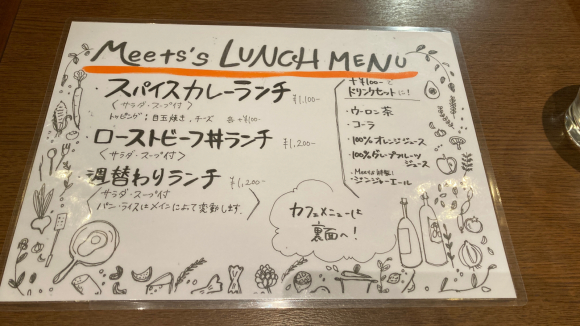 Meets's LUNCH MENU
・スパイスカレーランチ ¥1,100-
〈サラダ・スープ付〉
トッピング；目玉焼き、チーズ 各+¥100-
・ローストビーフ丼ランチ ¥1,200-
〈サラダ・スープ付〉
・週替わりランチ ¥1,200-
サラダ・スープ付
パン・ライスはメインによって変動します.
+¥100-で
ドリンクセットに!
・ウーロン茶
・コーラ
・100%オレンジジュース
・100%グレープフルーツ
ジュース
・Meets特製!
ジンジャーエール
カフェメニューは
裏面へ!